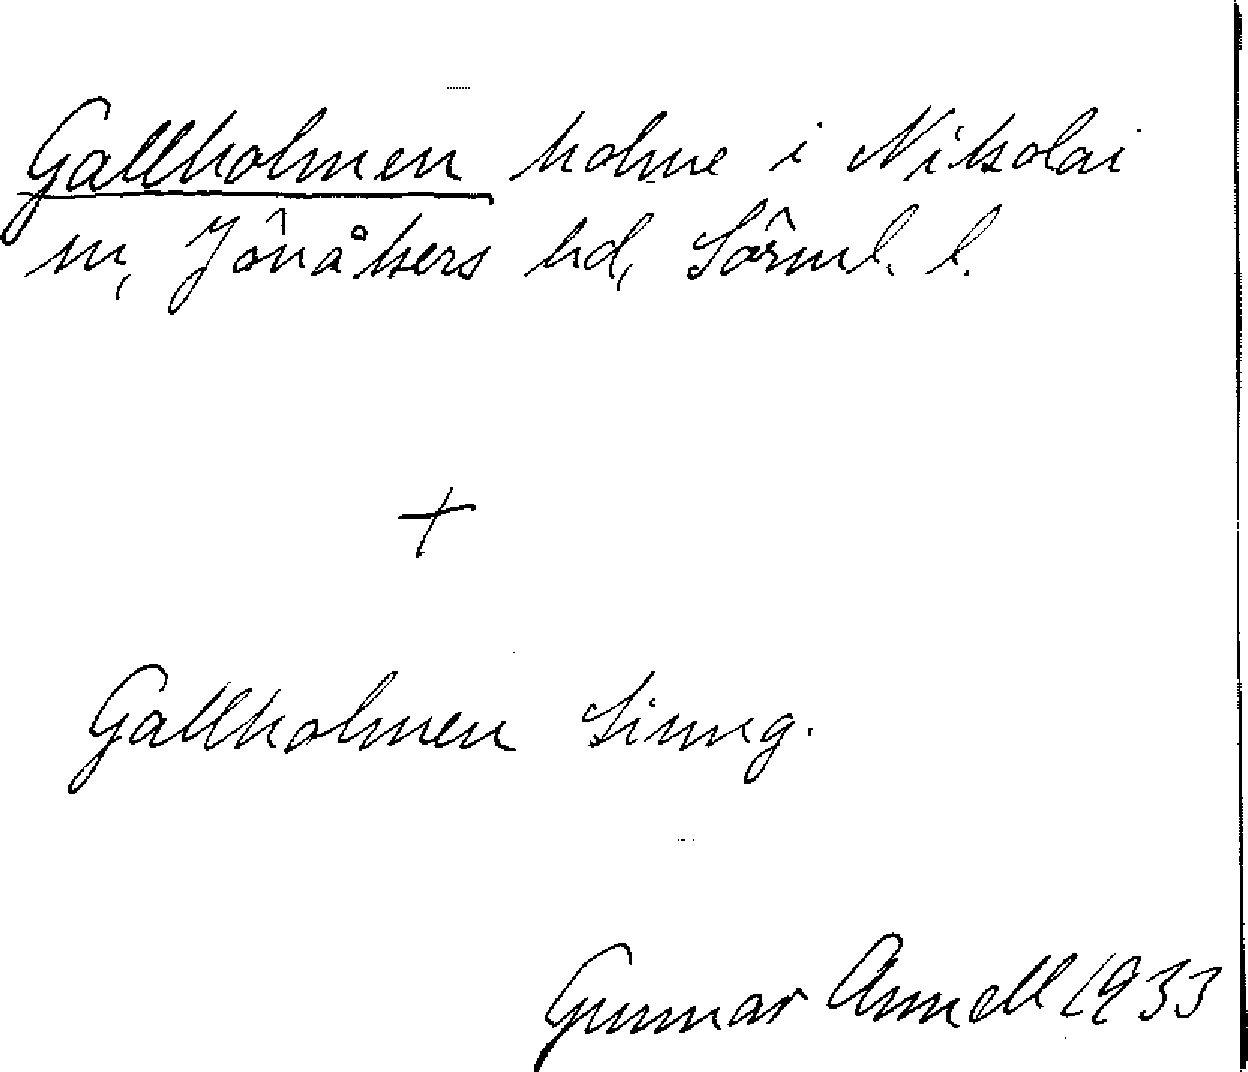 Gallholmen holme i Nikolai
sn, Jönåkers hd, Sörml. l.
+
Gallholmen
Gunnar Annell 1933